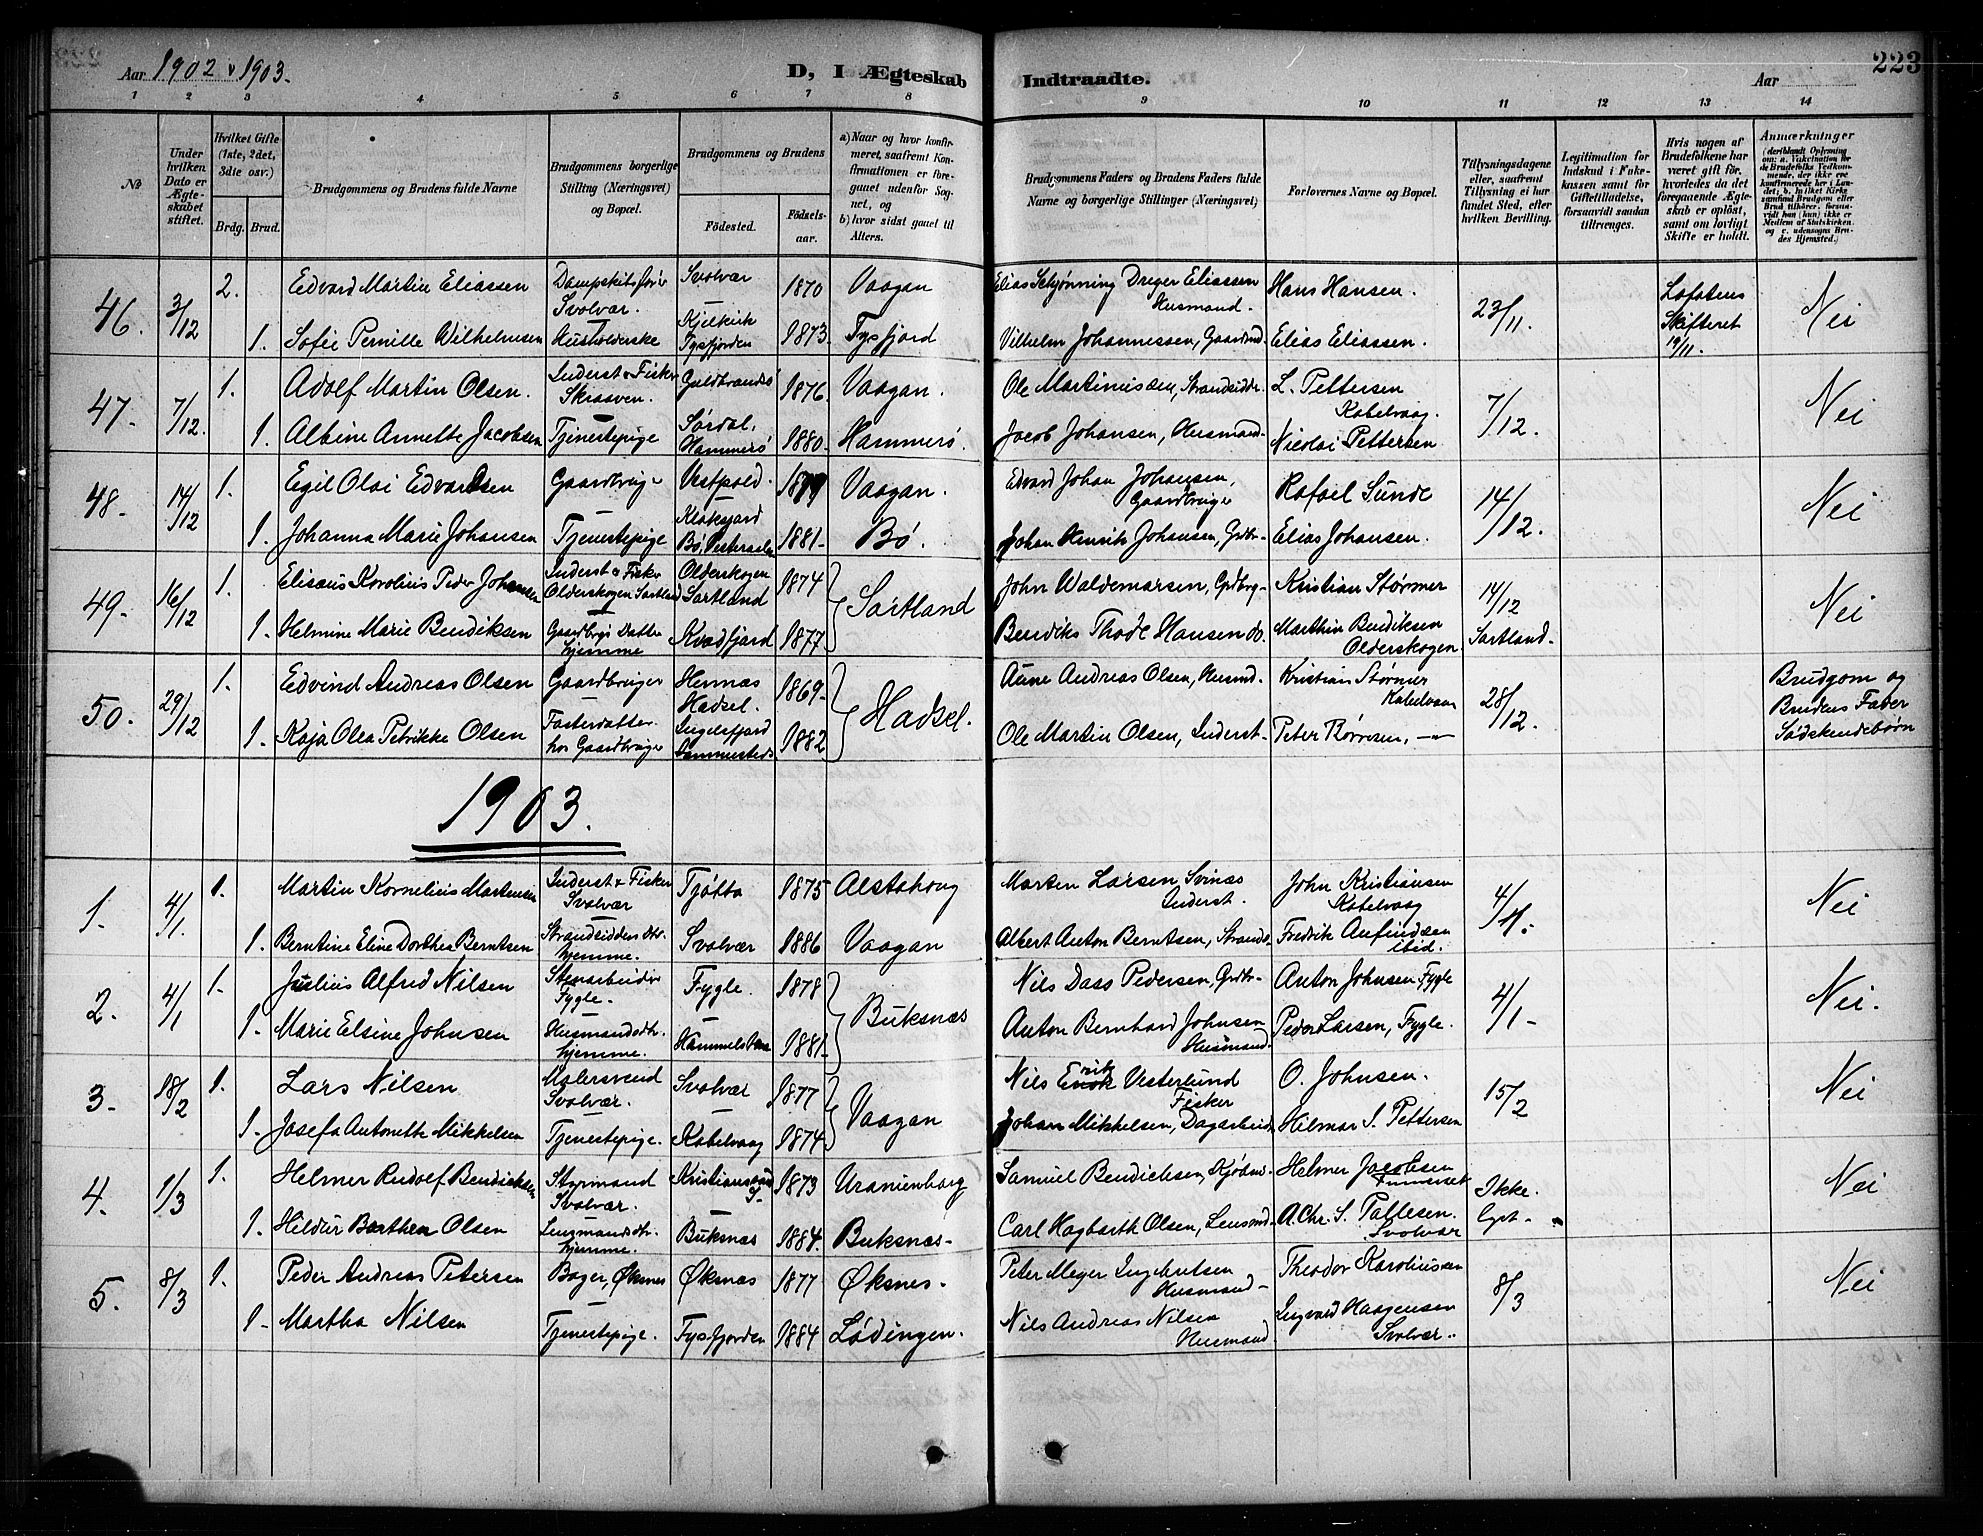 Aar 1902 & 1903.
D, I Ægteskab Indtraadte.
Aar
223
1 2 3 4 5 6 7 8 9 10 11 12 13 14
№
Under hvilken Dato er Ægteskabet stiftet.
Hvilket Gifte (1ste, 2det, 3die osv.)
Brdg. Brud.
Brudgommens og Brudens fulde Navne
Brudgommens borgerlige Stilling (Næringsvei) og Bopæl.
Brudgommens og Brudens
Fødested.
Fødselsaar.
a) Naar og hvor konfirmeret, saafremt Konfirmationen er foregaaet udenfor Sognet, og
b) hvor sidst gaaet til Alters.
Brudgommens Faders og Brudens Faders fulde Navne og borgerlige Stillinger (Næringsvei)
Forlovernes Navne og Bopæl.
Tillysningsdagene eller, saafremt Tillysning ei har fundet Sted, efter hvilken Bevilling.
Legitimation for Indskud i Enkekassen samt for Giftetilladelse, forsaavidt saadan tiltrænges.
Hvis nogen af Brudefolkene har været gift før, hvorledes da det foregaaende Ægteskab er opløst, samt om lovligt Skifte er holdt.
Anmærkninger (deriblandt Oplysning om: a. Vakcination for de Brudefolks Vedkommende, der ikke ere konfirmerede her i Landet; b. hvilket Kirkesamfund Brudgom eller Brud tilhører, forsaavidt han (hun) ikke er Medlem af Statskirken og c. udensogns Brudes Hjemsted.)
46. 3/12 2. Edvard Martin Eliassen Dampskibsfører Svolvær. Svolvær 1870 Vaagan Elias Schjønning Dreyer Eliassen Husmand. Hans Hansen. 23/11. Lofotens Skifteret 19/11. Nei
1. Sofie Pernille Wilhelmsen Husholderske Kjelkvik Tysfjorden 1873. Tysfjord Vilhelm Johannessen, Gaardmd. Elias Eliassen.
47. 7/12. 1. Adolf Martin Olsen. Inderst & Fisker Skraaven. Guldbrandsø 1876. Vaagan. Ole Martinussen, Strandsidder L. Pettersen Kabelvaag. 7/12. Nei
1. Albine Annette Jacobsen Tjenestepige Sørdal, Hammerø 1880. Hammerø. Jacob Johansen, Husmand. Nicolai Pettersen
48. 14/12 1. Egil Olai Edvardsen Gaardbruge Vestpold. 1879 Vaagan. Edvard Johan Johansen, Gaardbruge Rafael Sunde 14/12. Nei
1. Johanna Marie Johansen Tjenestepige Bø Vesteraalen 1881. Bø. Johan Henrik Johansen, Grdbr. Elias Johansen.
49. 16/12 1. Elisæus Korolius Peder Johansen Inderst & Fisker Olderskogen Sortland Olderskogen Sortland 1874 Sortland John Waldemarsen, Grdbrg. Kristian Størmer 14/12 Sortland. Nei
1. Helmine Marie Bendiksen Gaardbrgs Datter hjemme Kvædfjord 1877 Bendiks Thode Hansen do. Marthin Bendiksen Olderskogen
50. 29/12 1. Edvind Andreas Olsen Gaardbruger Hennes Hadsel. 1869. Hadsel. Aune Andreas Olsen, Husmd. Kristian Størmer Kabelvaag 28/12. Brudgom og Brudens Fader Sødskendebørn
1. Kaja Olea Petrikke Olsen Fosterdatter hos Gaardbruge Ingelsfjord Sammesteds 1882 Ole Martin Olsen, Inderst. Peter Børresen, —"—
1903.
1. 4/1. 1. Martin Kornelius Martensen Inderst & Fisker Svolvær Tjøtta 1875 Alstahoug Marten Larsen Svinæs Inderst. John Kristiansen Kabelvaag 4/1. Nei
1. Berntine Eline Dorthea Berntsen Strandsidders dtr. hjemme. Svolvær 1886 Vaagan Albert Anton Berntsen, Strands. Fredrik Anfindsen ibid.
2. 4/1 1. Julius Alfred Nilsen Stenarbeider Fygle. Fygle. 1878 Buksnæs Nils Dass Pedersen, Grdbr. Anton Johnsen, Fygle 4/1 Nei.
1. Marie Elsine Johnsen Husmandsdtr. hjemme. 1881. Anton Bernhard Johnsen Husmand. Peder Larsen, Fygle.
3. 18/2 1. Lars Nilsen Malersvend Svolvær. Svolvær 1877 Vaagan Nils Erik Vesterlund Fisker O. Johnsen. 15/2 Nei
1. Josefa Antonette Mikkelsen Tjenestepige. Kabelvaag 1874 Johan Mikkelsen, Dagarbeid. Hilmar S. Pettersen
4. 1/3 1. Helmer Rudolf Bendichsen Styrmand Svolvær. Kristiansund 1873 Uranienborg Samuel Bendichsen, Kjøbm. Helmer Jacobsen Ikke lyst. Nei
1. Hildur Barthea Olsen Lensmandsdtr. hjemme. Buksnæs 1884. Buksnæs. Carl Hagbarth Olsen, Lensmd. A. Chr. S. Pallesen. Svolvær
5. 8/3 1. Peder Andreas Petersen Bager, Øksnes Øksnæs 1877 Øksnes. Peter Meyer Ingebrigtsen Husmand Theodor Karoliussen 8/3 Nei
1. Martha Nilsen Tjenestepige. Tysfjorden 1884 Lødingen. Nils Andreas Nilsen Husmand Ingvard Haagensen Svolvær.